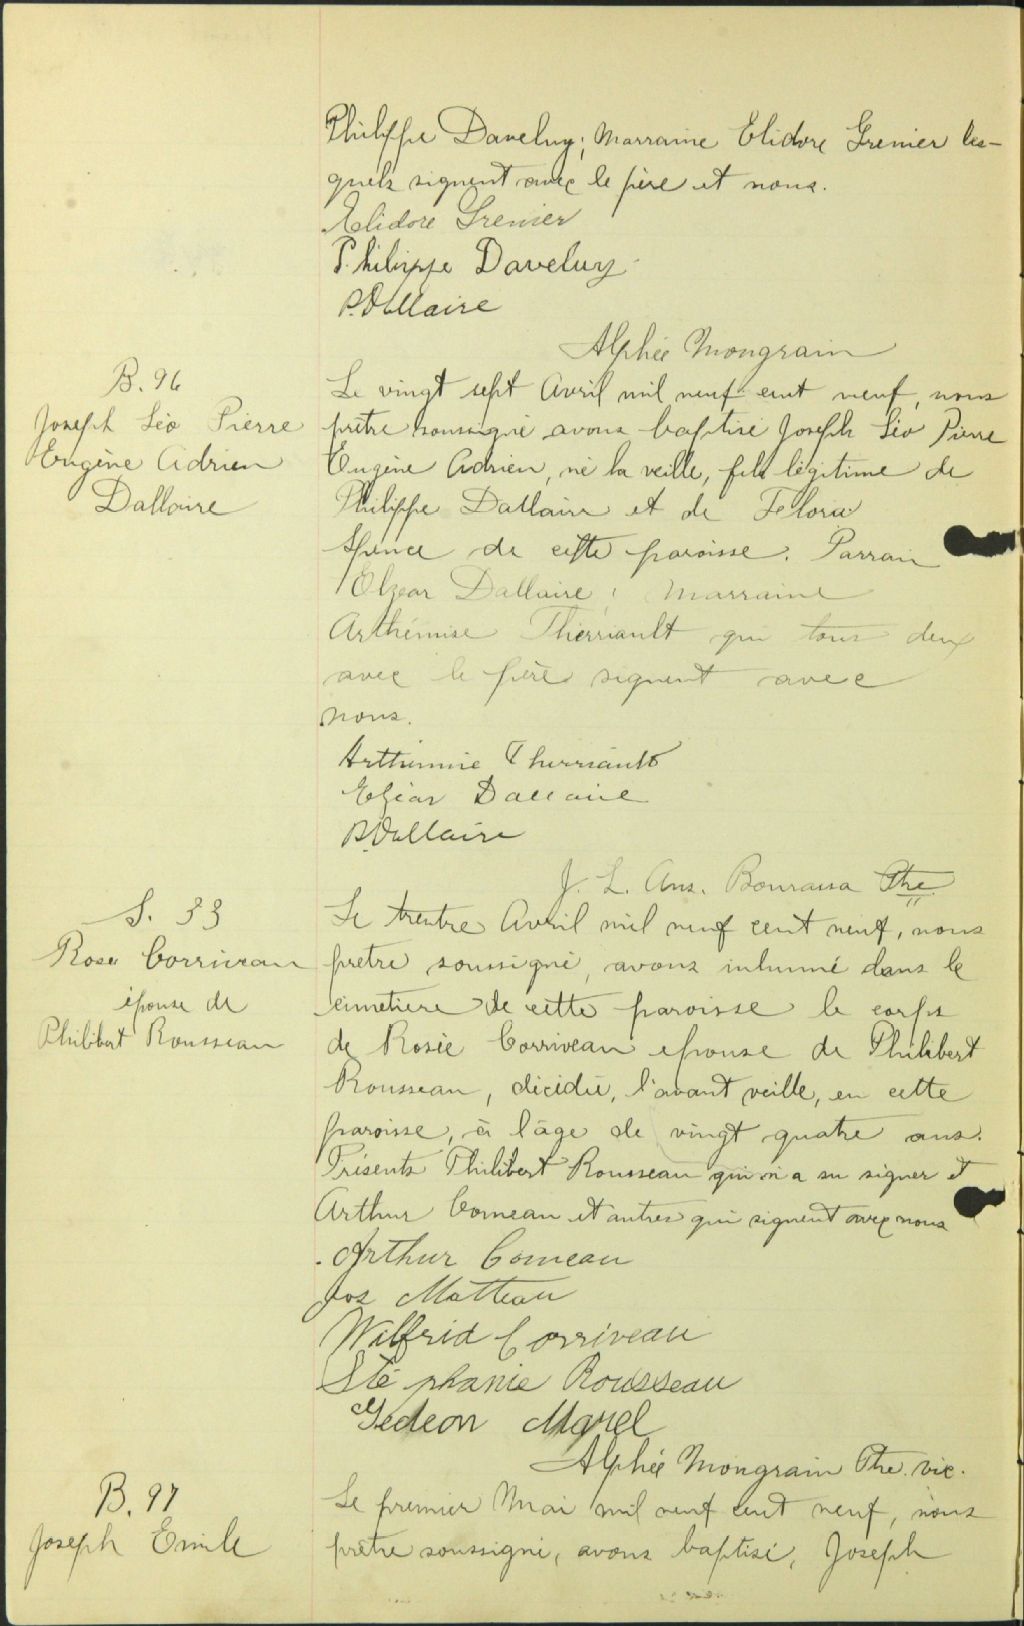 Philippe Daveluy; Marraine Elidore Grenier les-
quels signent avec le père et nous.
Elidore Grenier
Philippe Daveluy
P. Dallaire
Alphée Mongrain
B. 96
Joseph Léo Pierre
Eugène Adrien
Dallaire
Le vingt sept Avril mil neuf cent neuf, nous
prêtre soussigné avons baptisé Joseph Léo Pierre
Eugène Adrien, né la veille, fils légitime de
Philippe Dallaire et de Flora
Spence de cette paroisse. Parrain
Elzear Dallaire; Marraine
Arthémise Therriault qui tous deux
avec le père signent avec
nous.
Arthemise Therriault
Elzéar Dallaire
P. Dallaire
J. L. Ans. Bourassa Ptre
S. 33
Rose Corriveau
épouse de
Philibert Rousseau
Le trentre Avril mil neuf cent neuf, nous
prêtre soussigné, avons inhumé dans le
cimetière de cette paroisse le corps
de Rosée Corriveau épouse de Philibert
Rousseau, décédée, l'avant veille, en cette
paroisse, à l'âge de vingt quatre ans.
Présents Philibert Rousseau qui n'a su signer et
Arthur Comeau et autres qui signent avec nous
Arthur Comeau
Jos Matteau
Wilfrid Corriveau
Stéphanie Rousseau
Gedeon Marel
Alphée Mongrain Ptre. vic.
B. 97
Joseph Emile
Le premier Mai mil neuf cent neuf, nous
prêtre soussigné, avons baptisé, Joseph